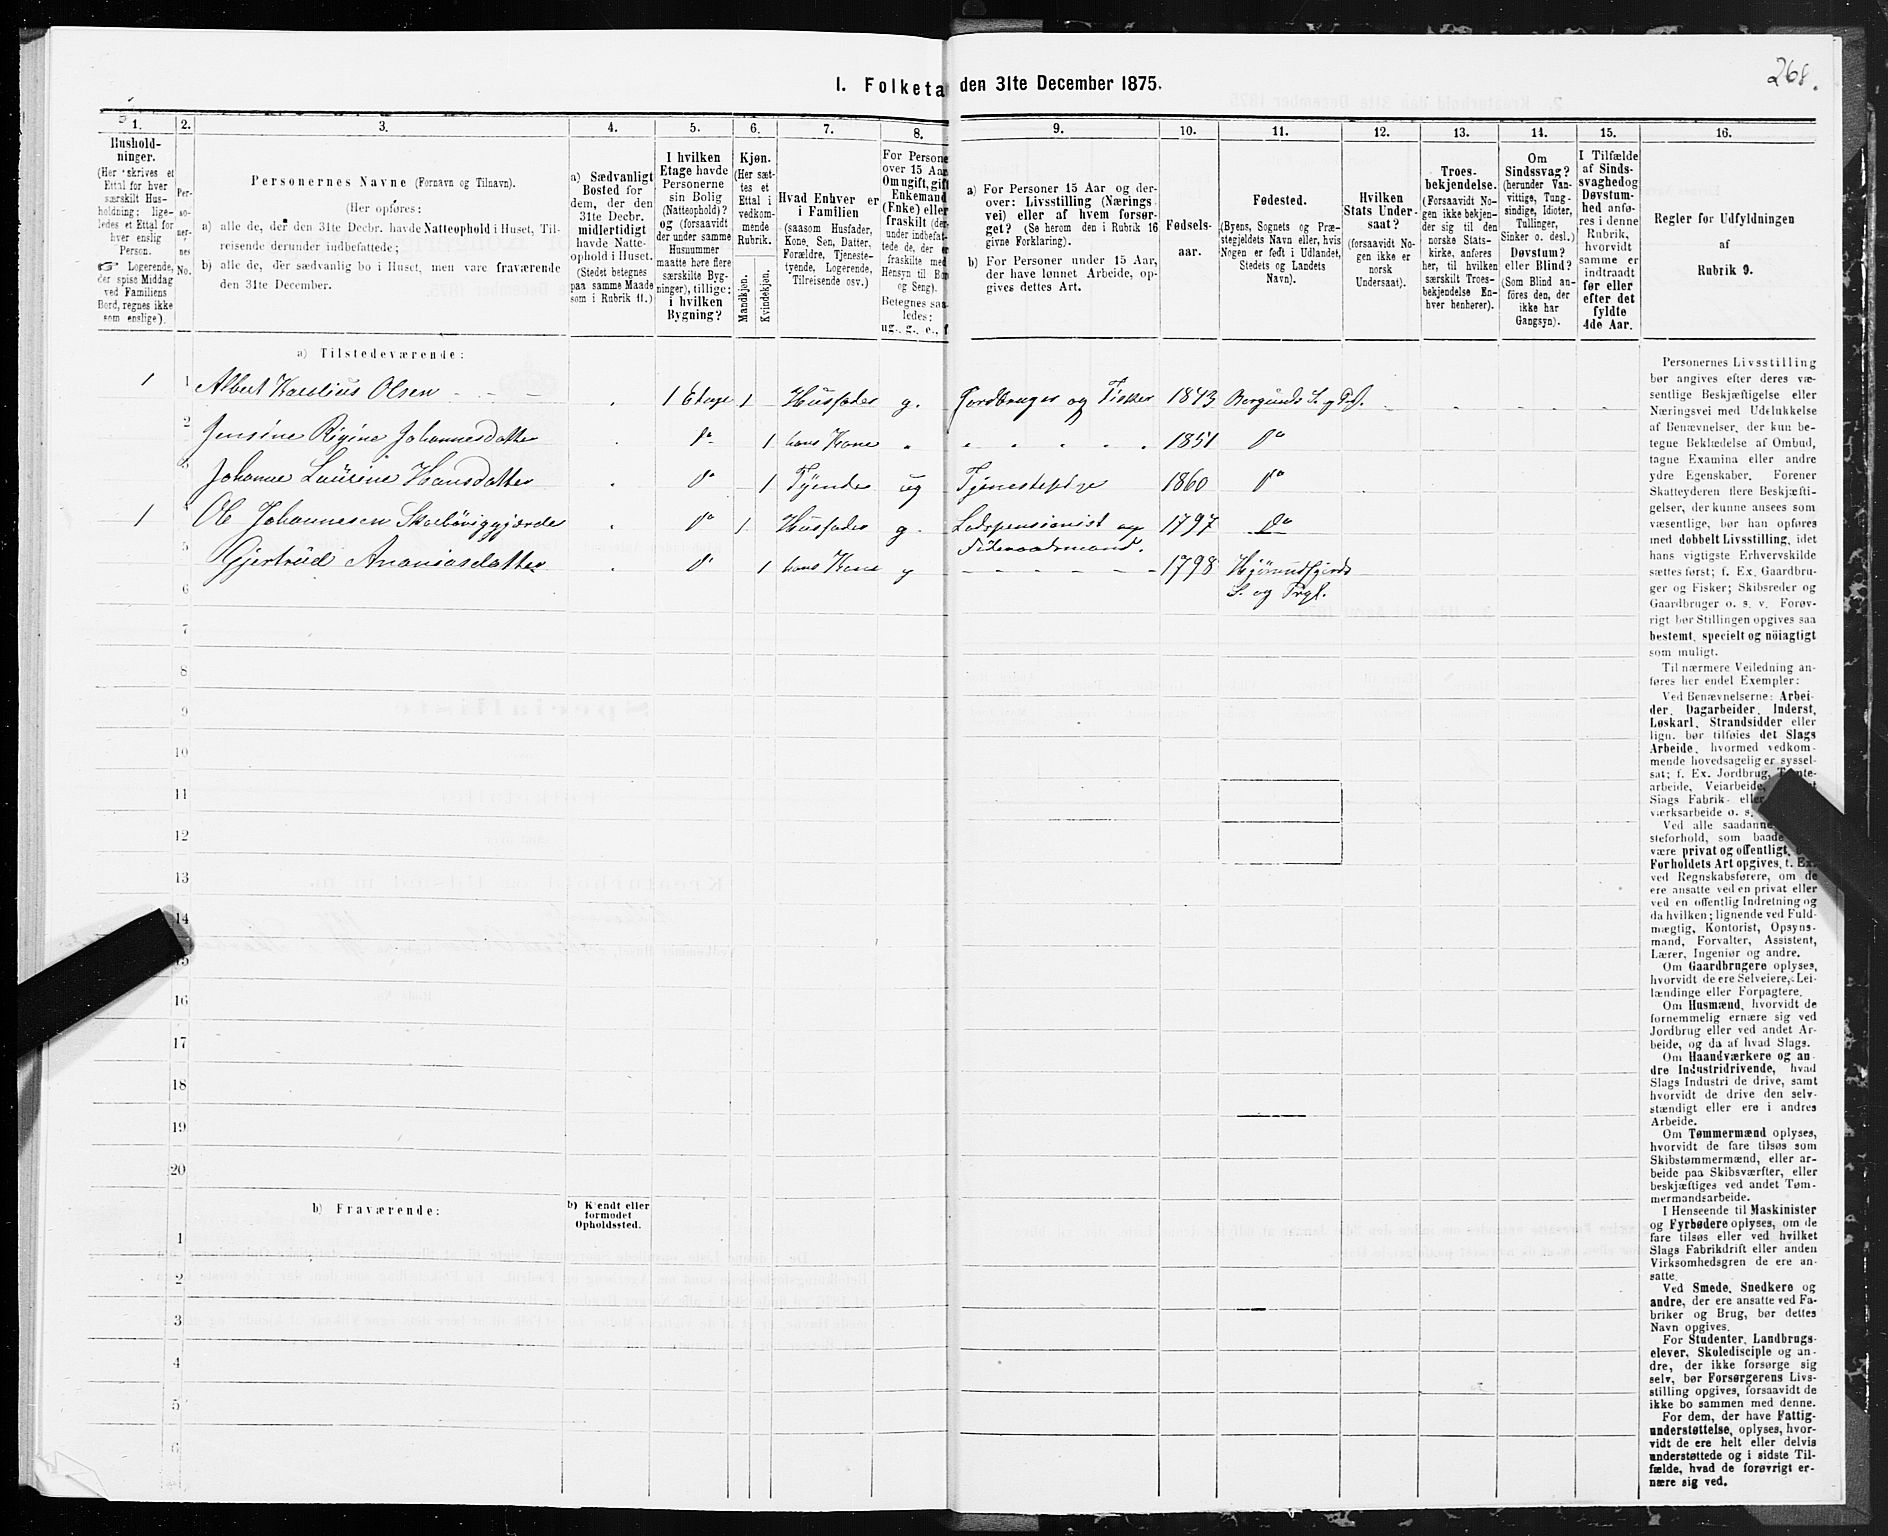 268.
I. Folketa den 31te December 1875.
1. 2. 3. 4. 5. 6. 7. 8. 9. 10. 11. 12. 13. 14. 15. 16.
Hushold-
ninger.
(Her skrives et
Ettal for hver
særskilt Hus-
holdning; lige-
ledes et Ettal for
hver enslig
Person.
☞ Logerende,
der spise Middag
ved Familiens
Bord, regnes ikke
som enslige).
Per-
so-
ner-
nes
No.
Personernes Navne (Fornavn og Tilnavn).
(Her opføres:
a) alle de, der den 31te Decbr. havde Natteophold i Huset, Til-
reisende derunder indbefattede;
b) alle de, der sædvanlig bo i Huset, men vare fraværende
den 31te December.
a) Sædvanligt
Bosted for
dem, der den
31te Decbr.
midlertidigt
havde Natte-
ophold i Huset.
(Stedet betegnes
paa samme Maade
som i Rubrik 11.)
I hvilken
Etage havde
Personerne
sin Bolig
(Natteophold)?
og (forsaavidt
der under samme
Husnummer
maatte høre flere
særskilte Byg-
ninger), tillige:
i hvilken
Bygning?
Kjøn.
(Her sæt-
tes et
Ettal i
vedkom-
mende
Rubrik.
Mandkjøn.
Kvindekjøn.
Hvad Enhver er
i Familien
(saasom Husfader,
Kone, Søn, Datter,
Forældre, Tjeneste-
tyende, Logerende,
Tilreisende osv.)
For Persone
over 15 Aar
Om ugift, gift
Enkemand
(Enke) eller
fraskilt (der-
under indbefat-
tede de, der er
fraskilte med
Hensyn til Bo
og Seng).
Betegnes saa
ledes:
ug., g., e., f
a) For Personer 15 Aar og der-
over: Livsstilling (Nærings
vei) eller af hvem forsør-
get? (Se herom den i Rubrik 16
givne Forklaring).
b) For Personer under 15 Aar,
der have lønnet Arbeide, op-
gives dettes Art.
Fødsels-
aar.
Fødested.
(Byens, Sognets og Præ-
stegjeldets Navn eller, hvis
Nogen er født i Udlandet,
Stedets og Landets
Navn).
Hvilken
Stats Under-
saat?
(forsaavidt No-
gen ikke er
norsk
Undersaat).
Troes-
bekjendelse.
(Forsaavidt No-
gen ikke bekjen-
der sig til den
norske Stats-
kirke, anføres
her, til hvilken
særskilt Troes-
bekjendelse En-
hver henhører).
Om
Sindssvag?
(herunder Van-
vittige, Tung-
sindige, Idioter,
Tullinger,
Sinker o. desl.)
Døvstum?
eller Blind?
(Som Blind an-
føres den, der
ikke har
Gangsyn).
I Tilfælde
af Sinds-
svaghed og
Døvstum-
hed anfø-
res i denne
Rubrik,
hvorvidt
samme er
indtraadt
før eller
efter det
fyldte
4de Aar.
Regler for Udfyldningen
af
Rubrik 9.
a) Tilstedeværende:
1 1 Albert Karolius Olsen 1 Etage 1 Husfader g. Jordbruger og Fisker 1843 Borgunds S. og Prf.
2 Jensine Rigine Johannesdatter do 1 hans Kone " 1851 do
3 Johanne Laurine Hansdatter do 1 Tyende ug Tjenestepige 1860 do
1 4 Ole Johannesen Skorbøviggjærde do 1 Husfader g. Ladspensionist og 1797 do
Føderaadsmand.
5 Gjertrud Ananiasdatter do 1 hans Kone g 1798 Hjørundfjords
6 S. og Prgl.
7
8
9
10
11
12
13
14
15
16
17
18
19
20
b) Fraværende:
b) Kjendt eller
formodet
Opholdssted.
1
2
3
4
5
6
Personernes Livsstilling
bør angives efter deres væ-
sentlige Beskjæftigelse eller
Næringsvei med Udelukkelse
af Benævnelser, der kun be-
tegne Beklædelse af Ombud,
tagne Examina eller andre
ydre Egenskaber. Forener
Skatteyderen flere Beskjæfti-
gelser, der kunne ansees som
væsentlige, bør han opføres
med dobbelt Livsstilling, idet
hans vigtigste Erhvervskilde
sættes først; f. Ex. Gaardbru-
ger og Fisker; Skibsreder og
Gaardbruger o. s. v. Forøv-
rigt bør Stillingen opgives saa
bestemt, specielt og nöiagtigt
som muligt.
Til nærmere Veiledning an-
føres her endel Exempler:
Ved Benævnelserne: Arbei-
der, Dagarbeider, Inderst,
Løskarl, Strandsidder eller
lign. bør tilføies det Slags
Arbeide, hvormed vedkom-
mende hovedsagelig er syssel-
sat; f. Ex. Jordbrug,
arbeide, Veiarbeide,
Slags Fabrik- eller
værksarbeide o. s.
Ved alle saadanne
steforhold, som baade
være privat og offentligt,
Forholdets Art opgives, f. Ex.
ved Regnskabsførere, om de
ere ansatte ved en privat eller
ved en offentlig Indretning og
da hvilken; lignende ved Fuld-
mægtig, Kontorist, Opsyns-
mand, Forvalter, Assistent,
Lærer, Ingeniør og andre.
Om Gaardbrugere oplyses,
hvorvidt de ere Selveiere, Lei-
lændinge eller Forpagtere.
Om Husmænd, hvorvidt de
fornemmelig ernære sig ved
Jordbrug eller ved andet Ar-
beide, og da af hvad Slags.
Om Haandværkere og an-
dre Industridrivende, hvad
Slags Industri de drive, samt
hvorvidt de drive den selv-
stændigt eller ere i andres
Arbeide.
Om Tømmermænd oplyses,
hvorvidt de fare tilsøs som
Skibstømmermænd, eller ar-
beide paa Skibsværfter, eller
beskjæftiges ved andet Tøm-
mermandsarbeide.
I Henseende til Maskinister
og Fyrbødere oplyses, om de
fare tilsøs eller ved hvilket
Slags Fabrikdrift eller anden
Virksomhedsgren de ere an-
satte.
Ved Smede, Snedkere og
andre, der ere ansatte ved Fa-
briker og Brug, bør dettes
Navn opgives.
For Studenter, Landbrugs-
elever, Skoledisciple og an-
dre, der ikke forsørge sig
selv, bør Forsørgerens Livs-
stilling opgives, forsaavidt de
ikke bo sammen med denne.
For dem, der have Fattig-
understøttelse, oplyses, hvor-
vidt de ere helt eller delvis
understøttede og i sidste Til-
fælde, hvad de forøvrigt er-
nære sig ved.